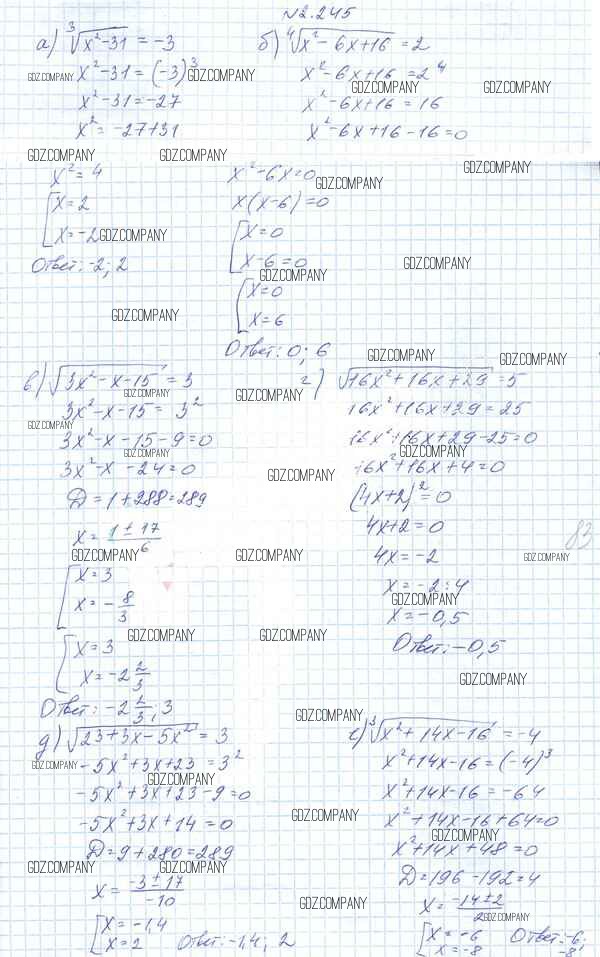 №2.245
а) ∛(x²-31) = -3
x²-31 = (-3)³
x²-31 = -27
x² = -27+31
x² = 4
[x = 2
x = -2
Ответ: -2; 2
б) ∜(x²-6x+16) = 2
x²-6x+16 = 2⁴
x²-6x+16 = 16
x²-6x+16-16 = 0
x²-6x = 0
x(x-6) = 0
[x = 0
x-6 = 0
[x = 0
x = 6
Ответ: 0; 6
в) √(3x²-x-15) = 3
3x²-x-15 = 3²
3x²-x-15-9 = 0
3x²-x-24 = 0
D = 1+288 = 289
x = (1±17)/6
[x = 3
x = -8/3
[x = 3
x = -2 2/3
Ответ: -2 2/3; 3
г) √(16x²+16x+29) = 5
16x²+16x+29 = 25
16x²+16x+29-25 = 0
16x²+16x+4 = 0
(4x+2)² = 0
4x+2 = 0
4x = -2
x = -2:4
x = -0,5
Ответ: -0,5
83
д) √(23+3x-5x²) = 3
-5x²+3x+23 = 3²
-5x²+3x+23-9 = 0
-5x²+3x+14 = 0
D = 9+280 = 289
x = (-3±17)/-10
[x = -1,4
x = 2
Ответ: -1,4; 2
е) ∛(x²+14x-16) = -4
x²+14x-16 = (-4)³
x²+14x-16 = -64
x²+14x-16+64 = 0
x²+14x+48 = 0
D = 196-192 = 4
x = (-14±2)/2
[x = -6
x = -8
Ответ: -6;
-8
GDZ.COMPANY